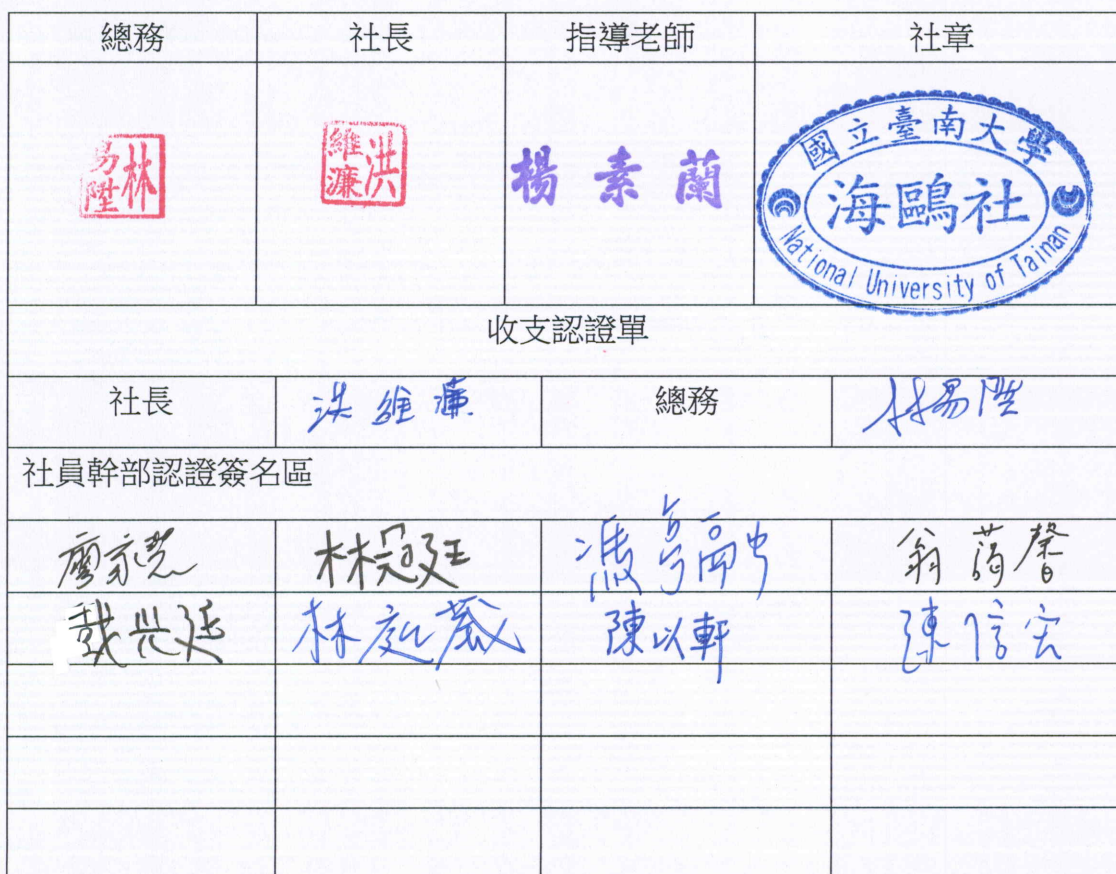 總務 社長 指導老師 社章
林易陞 洪維濂 楊素蘭 國立臺南大學 海鷗社 National University of Tainan
收支認證單
社長 洪維濂 總務 林易陞
社員幹部認證簽名區
林冠廷 馮亨融 翁茑馨
林庭葳 陳以軒 陳信宏